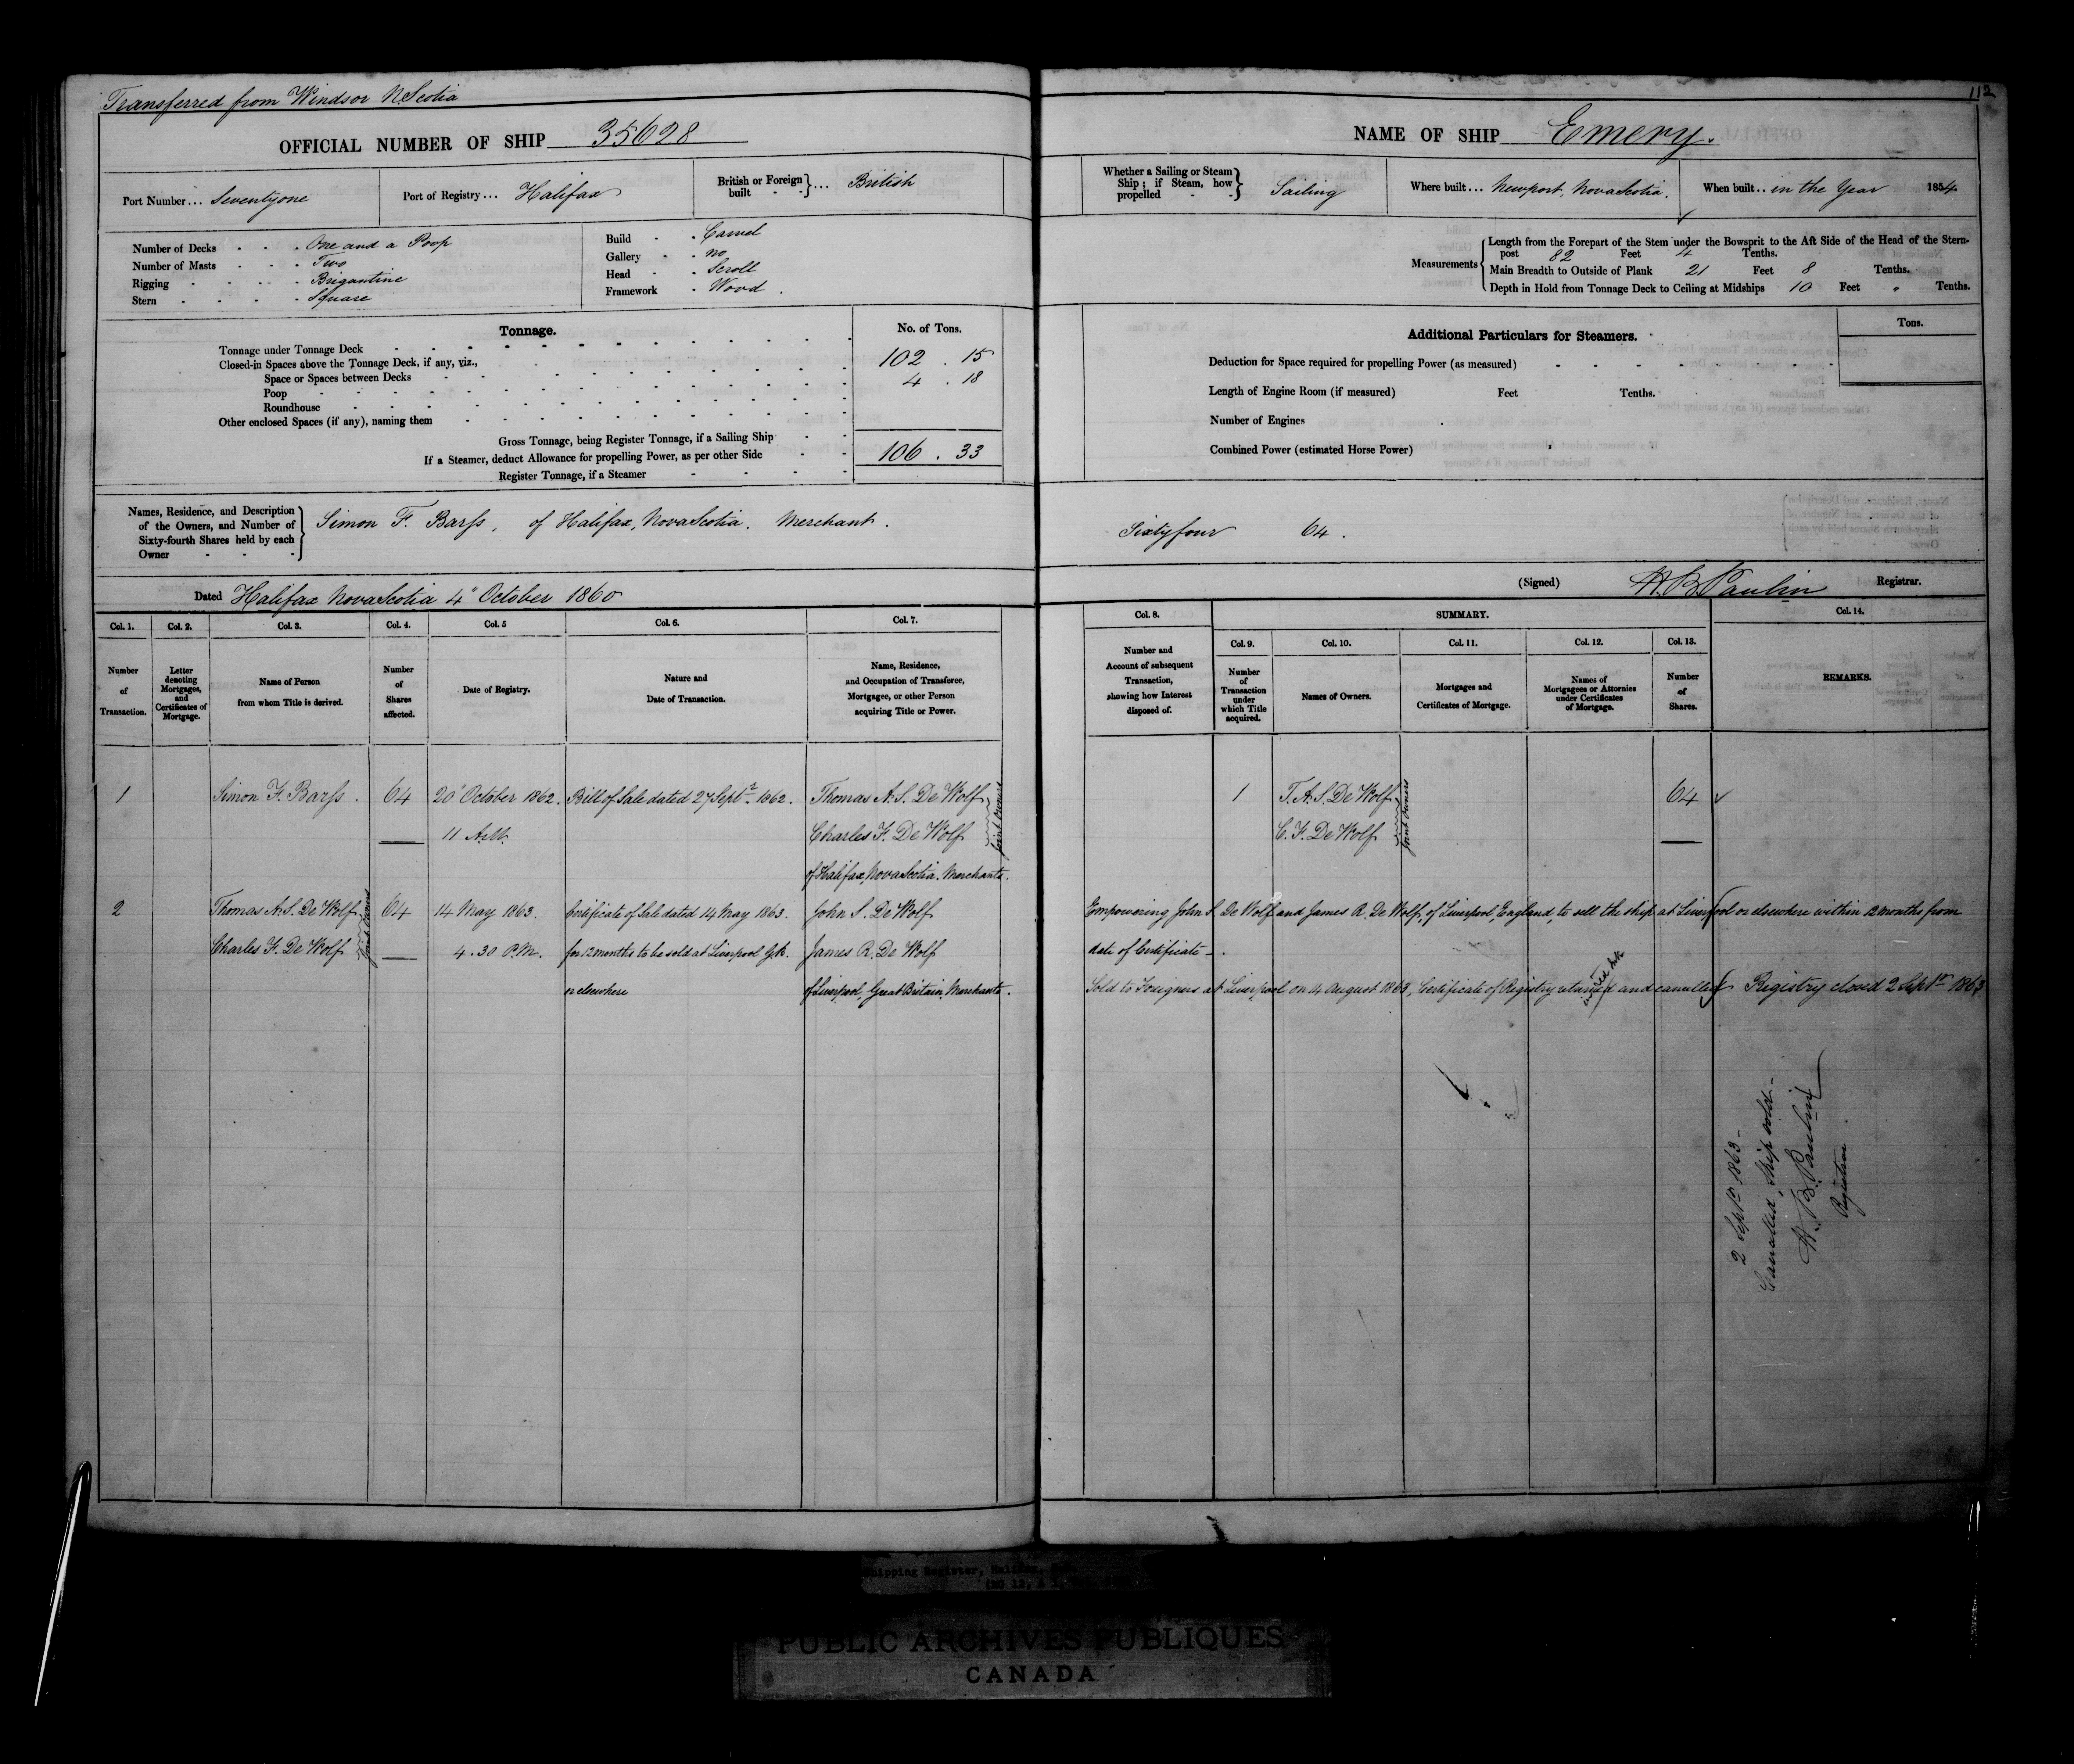 Transferred from Windsor N Scotia
OFFICIAL NUMBER OF SHIP 35628
Port Number ... Seventyone
Port of Registry ... Halifax
British or Foreign built } ... British
Number of Decks - - - One and a Poop
Number of Masts - - - Two
Rigging - - - - Brigantine
Stern - - - - Square
Build - - Carvel
Gallery - - no
Head - - Scroll
Framework - Wood .
Tonnage.
No. of Tons.
Tonnage under Tonnage Deck 102 . 15
Closed-in Spaces above the Tonnage Deck, if any, viz.,
Space or Spaces between Decks
Poop 4 . 18
Roundhouse
Other enclosed Spaces (if any), naming them
Gross Tonnage, being Register Tonnage, if a Sailing Ship 106 . 33
If a Steamer, deduct Allowance for propelling Power, as per other Side
Register Tonnage, if a Steamer
Names, Residence, and Description of the Owners, and Number of Sixty-fourth Shares held by each Owner }
Simon F. Barss, of Halifax, Nova Scotia. Merchant.
Dated Halifax Nova Scotia 4" October 1860
Col. 1. Col. 2. Col. 3. Col. 4. Col. 5 Col. 6. Col. 7.
Number of Transaction.
Letter denoting Mortgages, and Certificates of Mortgage.
Name of Person from whom Title is derived.
Number of Shares affected.
Date of Registry.
Nature and Date of Transaction.
Name, Residence, and Occupation of Transferee, Mortgagee, or other Person acquiring Title or Power.
1 Simon F. Barss . 64 20" October 1862. Bill of Sale dated 27 Sept. 1862. Thomas A. S. De Wolf
11 A.M. Charles F. De Wolf
Joint Owners
of Halifax, Nova Scotia. Merchants.
2 Thomas A. S. De Wolf 64 14 May 1863. Certificate of Sale dated 14 May 1863. John S. De Wolf
Charles F. De Wolf 4.30 P.M. for 12 months to be sold at Liverpool G.B. James R. De Wolf
Joint Owners
or elsewhere of Liverpool, Great Britain, Merchants.
112
NAME OF SHIP Emery.
Whether a Sailing or Steam Ship ; if Steam, how propelled - - } Sailing
Where built ... Newport, Nova Scotia.
When built .. in the Year 1854
Measurements
Length from the Forepart of the Stem under the Bowsprit to the Aft Side of the Head of the Stern-
post 82 Feet 4 Tenths.
Main Breadth to Outside of Plank 21 Feet 8 Tenths.
Depth in Hold from Tonnage Deck to Ceiling at Midships 10 Feet " Tenths.
Additional Particulars for Steamers.
Tons.
Deduction for Space required for propelling Power (as measured)
Length of Engine Room (if measured) Feet Tenths.
Number of Engines
Combined Power (estimated Horse Power)
Sixtyfour 64 .
(Signed) H. B. Paulin Registrar.
Col. 8. SUMMARY. Col. 14.
Col. 9. Col. 10. Col. 11. Col. 12. Col. 13.
Number and Account of subsequent Transaction, showing how Interest disposed of.
Number of Transaction under which Title acquired.
Names of Owners.
Mortgages and Certificates of Mortgage.
Names of Mortgagees or Attornies under Certificates of Mortgage.
Number of Shares.
REMARKS.
1 T. A. S. De Wolf 64
C. F. De Wolf
Joint Owners
Empowering John S. De Wolf and James R. De Wolf, of Liverpool, England, to sell the ship at Liverpool or elsewhere within 12 months from
date of Certificate -
Sold to Foreigners at Liverpool on 4 August 1863, Certificate of Registry returned and cancelled Registry closed 2 Sept 1863
2 Sept 1863 -
Cancelled, Ship sold -
H. B. Paulin
Registrar.
Shipping Register,
PUBLIC ARCHIVES PUBLIQUES
CANADA